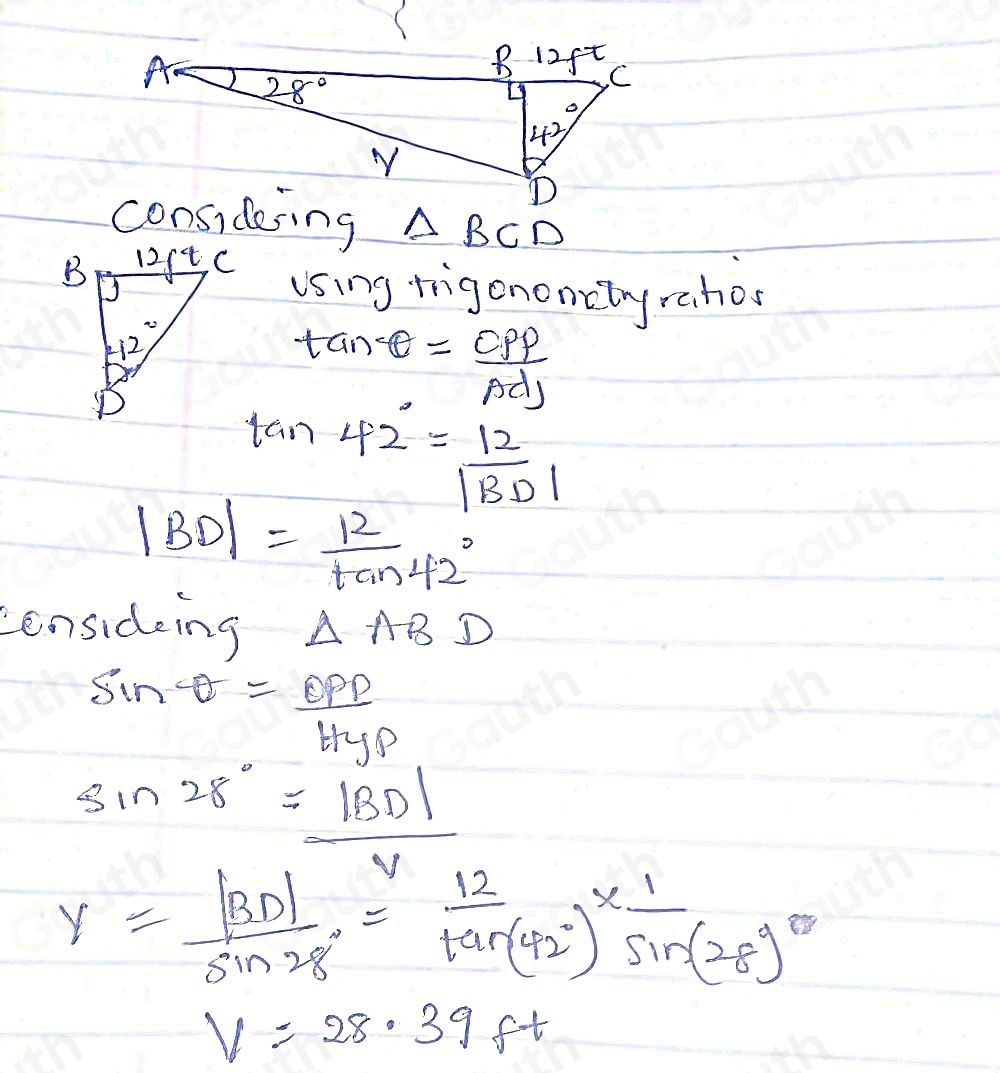 A 28° B 12ft C
42°
Y
D
considering Δ BCD
B 12ft C
using trigonometry ratios
42°
D
tan θ = OPP / Adj
tan 42° = 12 / |BD|
|BD| = 12 / tan 42°
considering Δ ABD
Sin θ = OPP / Hyp
sin 28° = |BD| / V
Y = |BD| / sin 28° = 12 / tan(42°) × 1 / sin(28°)
V = 28.39 ft